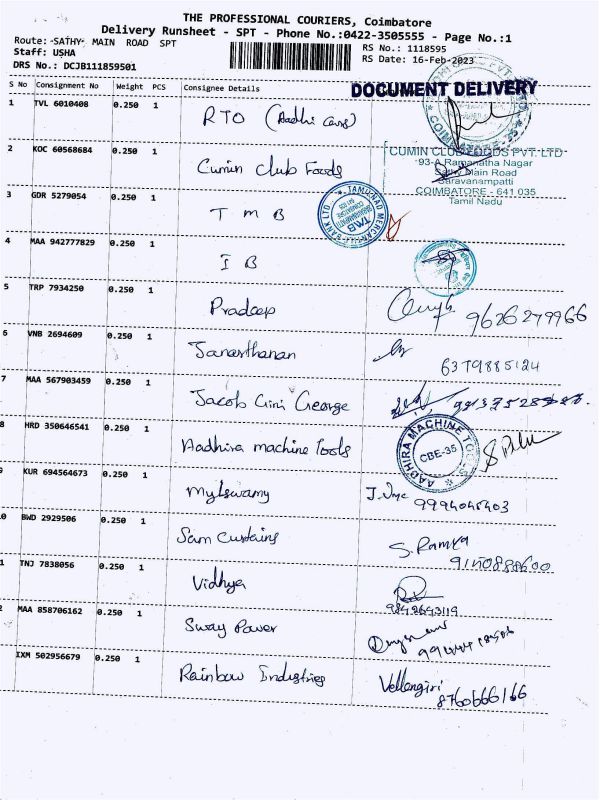 THE PROFESSIONAL COURIERS, Coimbatore
Delivery Runsheet - SPT - Phone No.:0422-3505555 - Page No.:1
Route:-SATHY- MAIN ROAD SPT
RS No.: 1118595
Staff: USHA
RS Date: 16-Feb-2023
DRS No.: DCJB111859501
S No Consignment No Weight PCS Consignee Details
DOCUMENT DELIVERY
1 TVL 6010408 0.250 1 RTO
2 KOC 60568684 0.250 1 Cumin Club Foods
CUMIN CLUB FOODS PVT. LTD
93-A Ramanatha Nagar
Sathy Main Road
Saravanampatti
COIMBATORE - 641 035
Tamil Nadu
3 GDR 5279054 0.250 1 TMB
TAMILNAD MERCANTILE BANK LTD
TMB
4 MAA 942777829 0.250 1 IB
5 TRP 7934250 0.250 1 Pradeep 9626279966
6 VNB 2694609 0.250 1 Janarthanan 6379885124
7 MAA 567903459 0.250 1 Jacob Gini George
8 HRD 350646541 0.250 1 Aadhira machine Tools
AADHIRA MACHINE TOOLS
CBE-35
9 KUR 694564673 0.250 1 Mylswamy
0 BWD 2929506 0.250 1 Sam Curtains S. Ramya
1 TNJ 7838056 0.250 1 Vidhya
9842643119
2 MAA 858706162 0.250 1 Sway Power
IXM 502956679 0.250 1 Rainbow Industries Vellangiri
8760666166